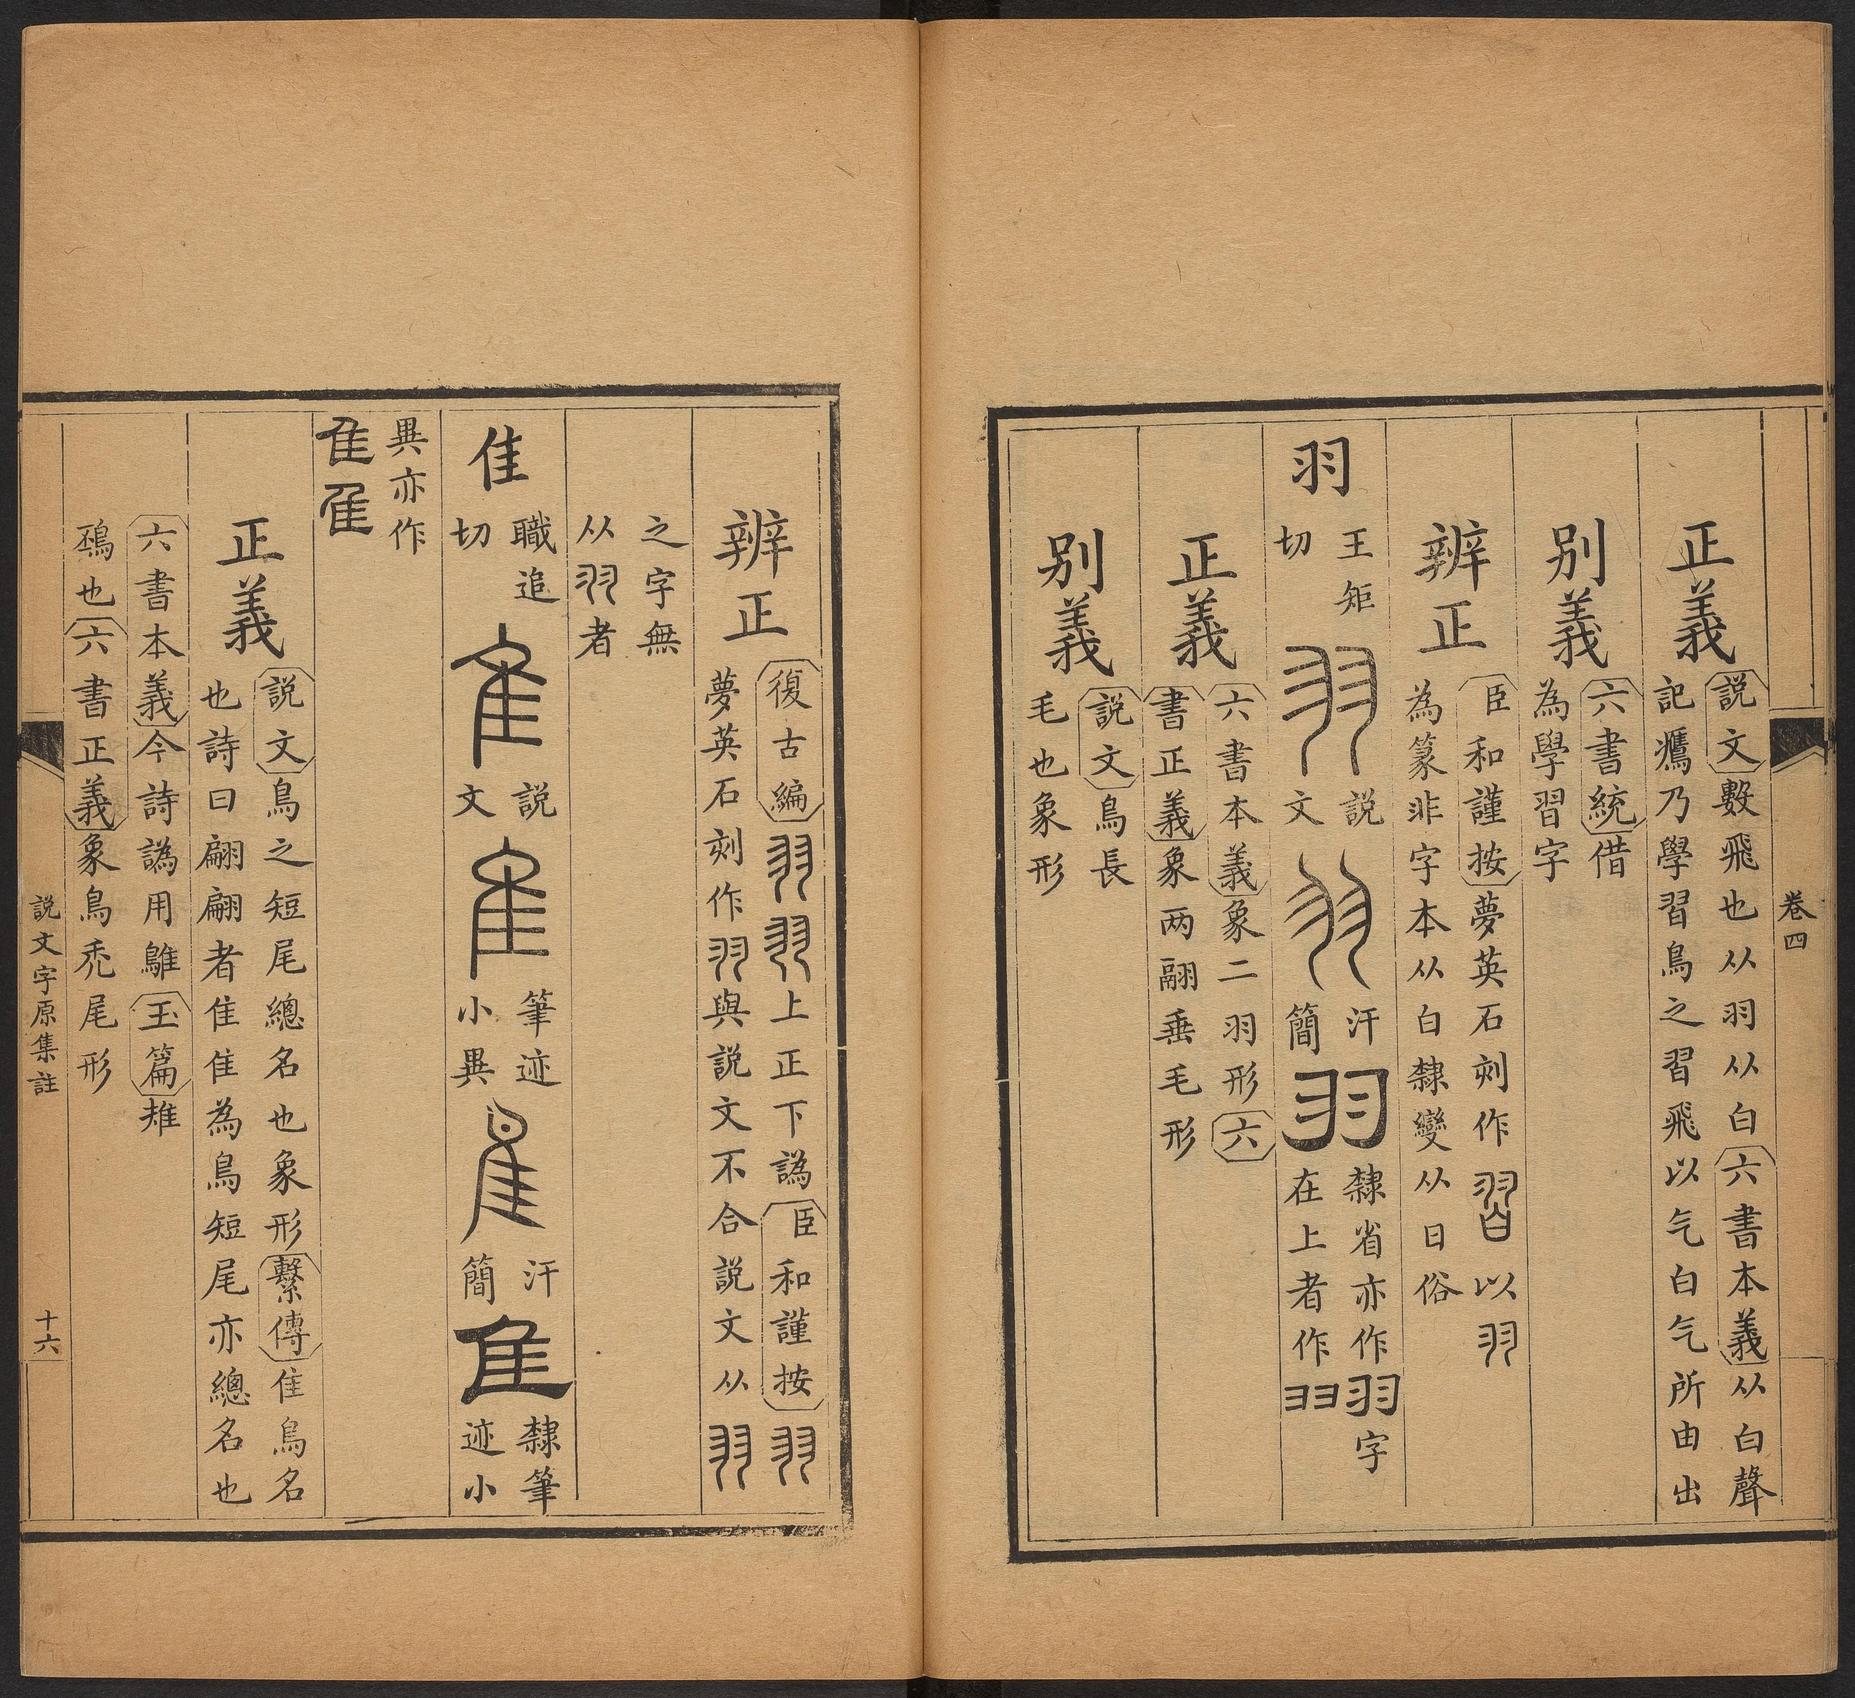 卷四
正義
說文數飛也从羽从白六書本義从白聲
記鷹乃學習鳥之習飛以气白气所由出
別義
六書統借
為學習字
辨正
臣和謹按夢英石刻作習以羽
為篆非字本从白隸變从日俗
羽
王矩
切
羽
說
文
羽
汗
簡
羽
隸省亦作羽字
在上者作羽
正義
六書本義象二羽形六
書正義象两翮垂毛形
別義
說文鳥長
毛也象形
辨正
復古編羽羽上正下譌臣和謹按羽
夢英石刻作羽與說文不合說文从羽
之字無
从羽者
隹
職追
切
隹
說
文
隹
筆迹
小異
隹
汗
簡
隹
隸筆
迹小
異亦作
隹隹
正義
說文鳥之短尾總名也象形繫傳隹鳥名
也詩曰翩翩者隹隹為鳥短尾亦總名也
六書本義今詩譌用鵻玉篇
鴀也六書正義象鳥禿尾形
說文字原集註
十六